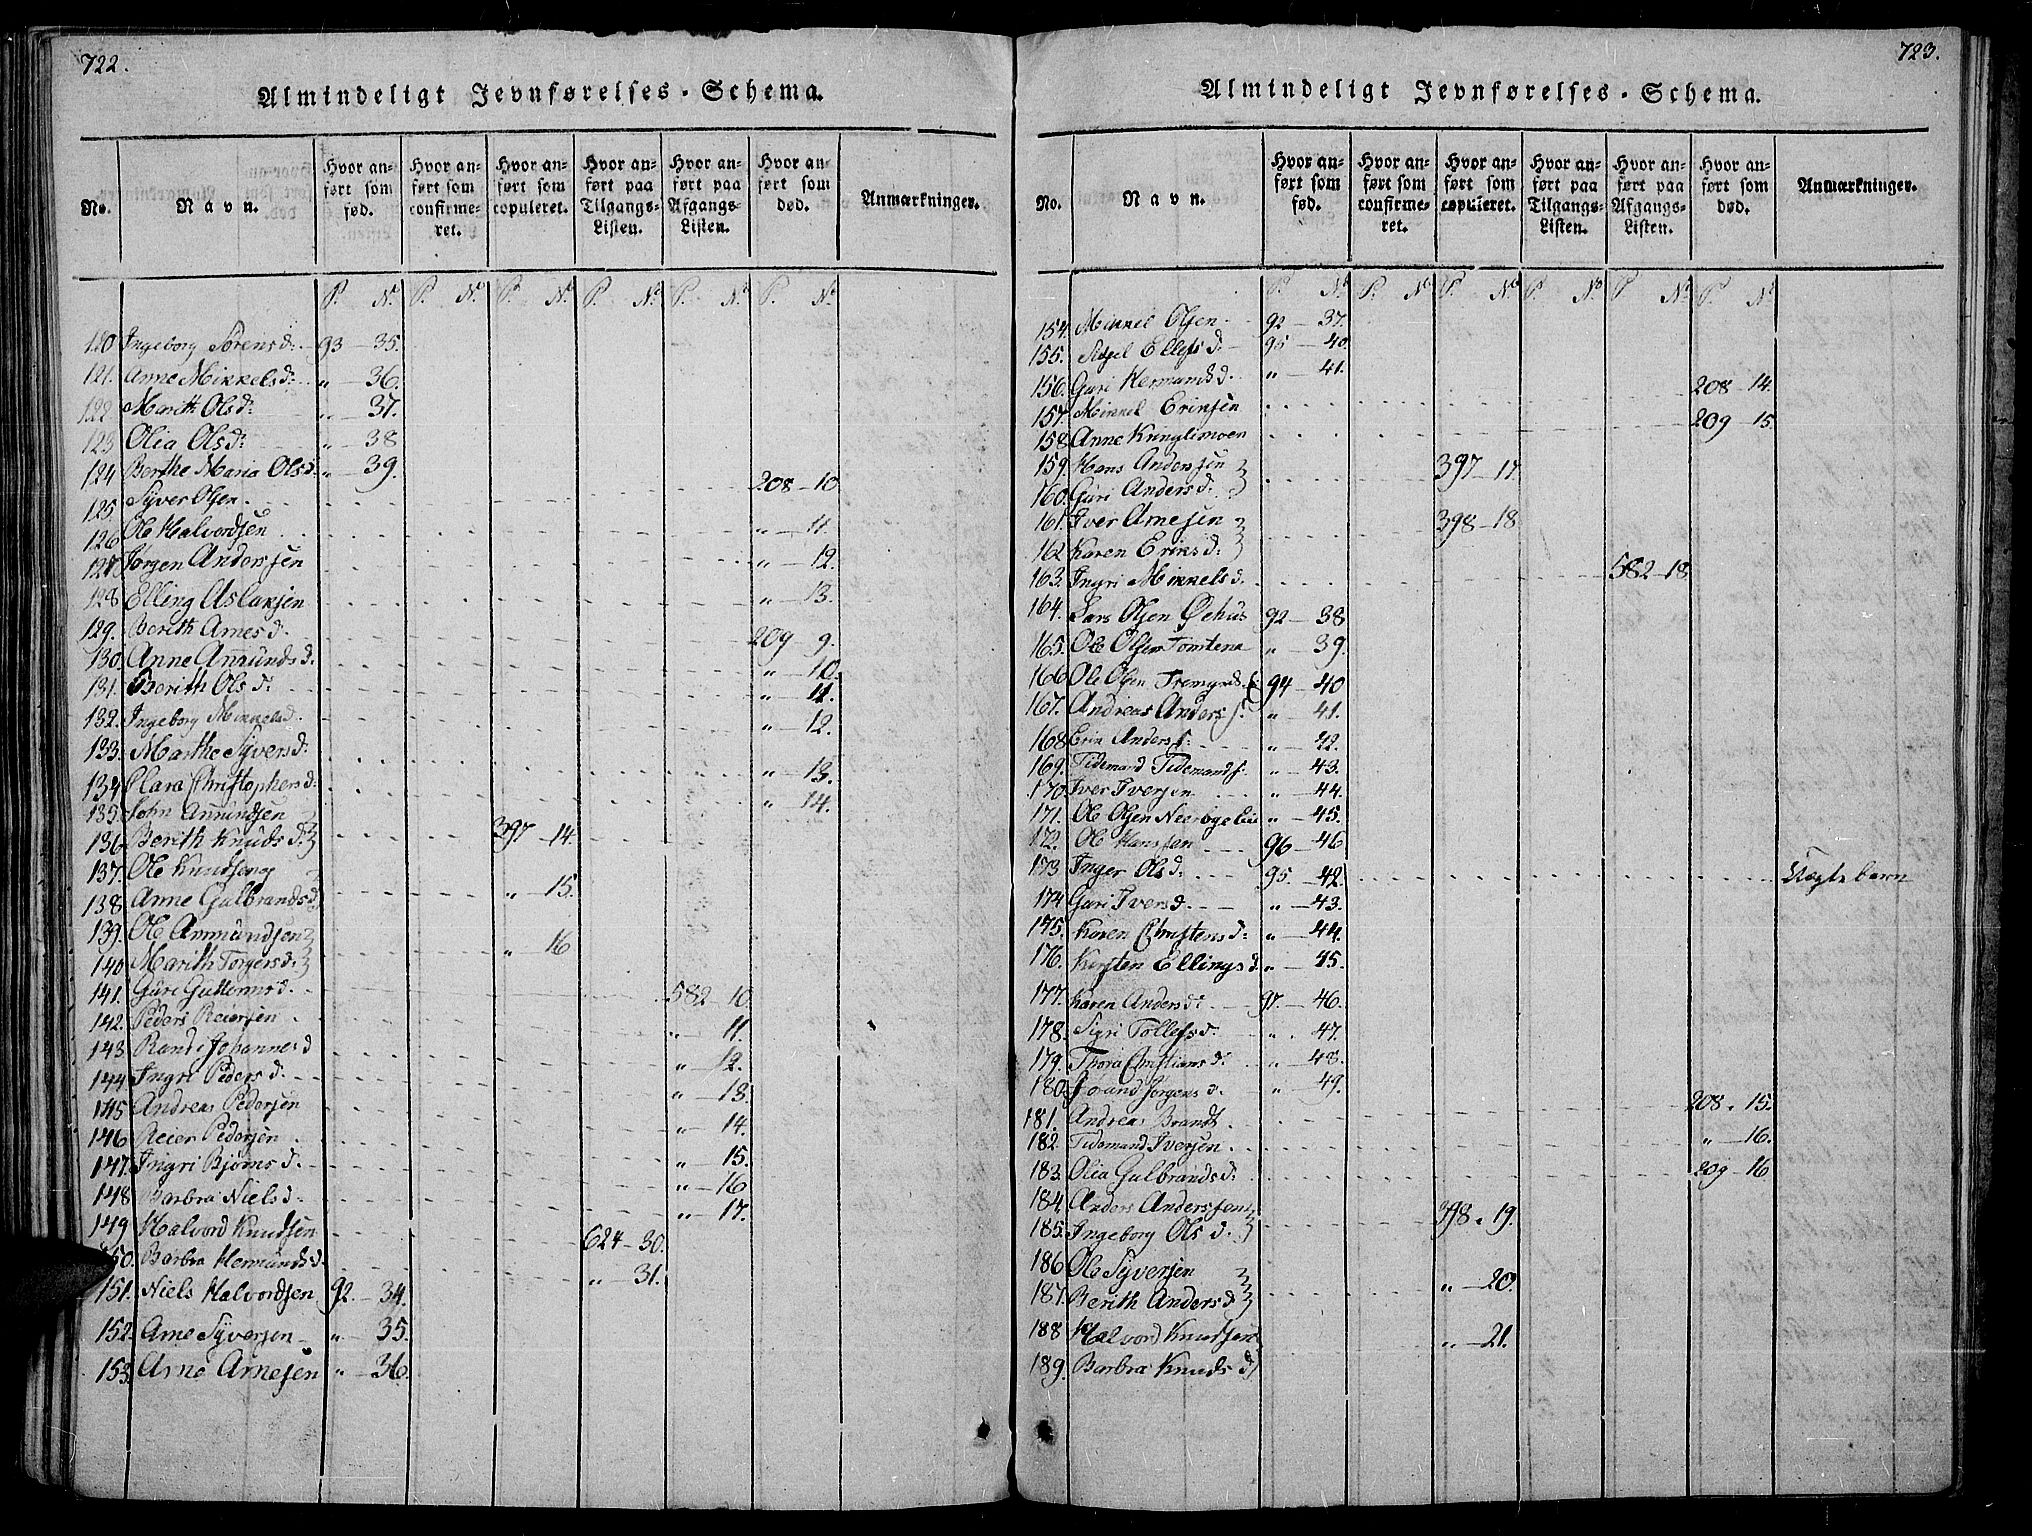 722.
Almindeligt Jevnførelses-Schema.
No. Navn. Hvor anført som fød. Hvor anført som confirmeret. Hvor anført som copuleret. Hvor anført paa Tilgangs-Listen. Hvor anført paa Afgangs-Listen. Hvor anført som død. Anmærkninger.
P. No. P. No. P. No. P. No. P. No. P. No.
120 Ingeborg Sørensd: 93 – 35.
121. Anne Mikkelsd: " – 36.
122 Marith Olsd: " – 37.
123 Olia Olsd: " – 38
124 Berthe Maria Olsd: " – 39.
125 Syver Olsen. 208 – 10
126 Ole Halvordsen " – 11
127 Jørgen Andersen " – 12.
128 Elling Aslaksen " – 13.
129. Berith Arnesd. 209 – 9.
130. Anne Amundsd. " – 10.
131. Berith Olsd: " – 11.
132. Ingeborg Mikkelsd. " – 12.
133. Marthe Syversd: " – 13.
134 Clara Christophersd: " – 14.
135. John Amundsen
136 Berith Knudsd. 397 – 14.
137. Ole Knudsen
138 Anne Gulbrandsd " – 15.
139. Ole Ammundsen
140 Marith Torgersd. " 16
141. Guri Guttormsd. 582 – 10
142. Peder Reiersen " – 11.
143 Randi Johannesd " – 12.
144 Ingri Pedersd. " – 13.
145 Andreas Pedersen " – 14.
146 Reier Pedersen " – 15.
147. Ingri Bjørnsd. " – 16
148 Barbra Nielsd. " – 17.
149 Halvord Knudsen 624 – 30.
150. Barbra Hermundsd. " – 31.
151. Niels Halvordsen 92. – 34.
152. Arne Syversen " – 35.
153. Arne Arnesen " – 36.
723.
Almindeligt Jevnførelses-Schema.
No. Navn. Hvor anført som fød. Hvor anført som confirmeret. Hvor anført som copuleret. Hvor anført paa Tilgangs-Listen. Hvor anført paa Afgangs-Listen. Hvor anført som død. Anmærkninger.
P. No. P. No. P. No. P. No. P. No. P. No.
154. Mikkel Olsen. 92 – 37.
155. Sidsel Ellefsd. 95 – 40
156. Guri Hermandsd. " – 41.
157. Mikkel Eriksen 208 – 14.
158 Anne Kringlimoen 209 – 15
159. Hans Andersen
160. Guri Andersd. 397 – 17.
161. Iver Arnesen
162 Karen Eriksd. 398 – 18
163. Ingri Mikkelsd. 582 – 18
164. Lars Olsen Øehus 92 – 38
165. Ole Olsen Tomtena " – 39.
166 Ole Olsen 94 – 40
167. Andreas Anders " – 41.
168 Erik Anders " – 42.
169. Tidemand Tidemands " – 43.
170. Iver Iversen " – 44.
171. Ole Olsen " – 45.
172. Ole Hanssen 96 – 46
173 Inger Olsd. 95. – 42. Uægte barn
174 Guri Iversd. " – 43.
175. Karen Christensd: " – 44.
176. Kirsten Ellingsd. " – 45.
177. Karen Andersd: 97. – 46.
178. Sigri Tollefsd. " . 47.
179. Thora Christiansd. " – 48.
180. Jorand Jørgensd. " – 49.
181. Andreas Brandt. 208 . 15.
182. Tidemand Iversen. " – 16.
183. Olia Gulbrandsd. 209 – 16
184. Anders Anderssen
185. Ingeborg Olsd. 398 . 19.
186 Ole Syversen
187. Berith Andersd. " – 20.
188 Halvord Knudsen
189. Barbra Knudsd. " – 21.